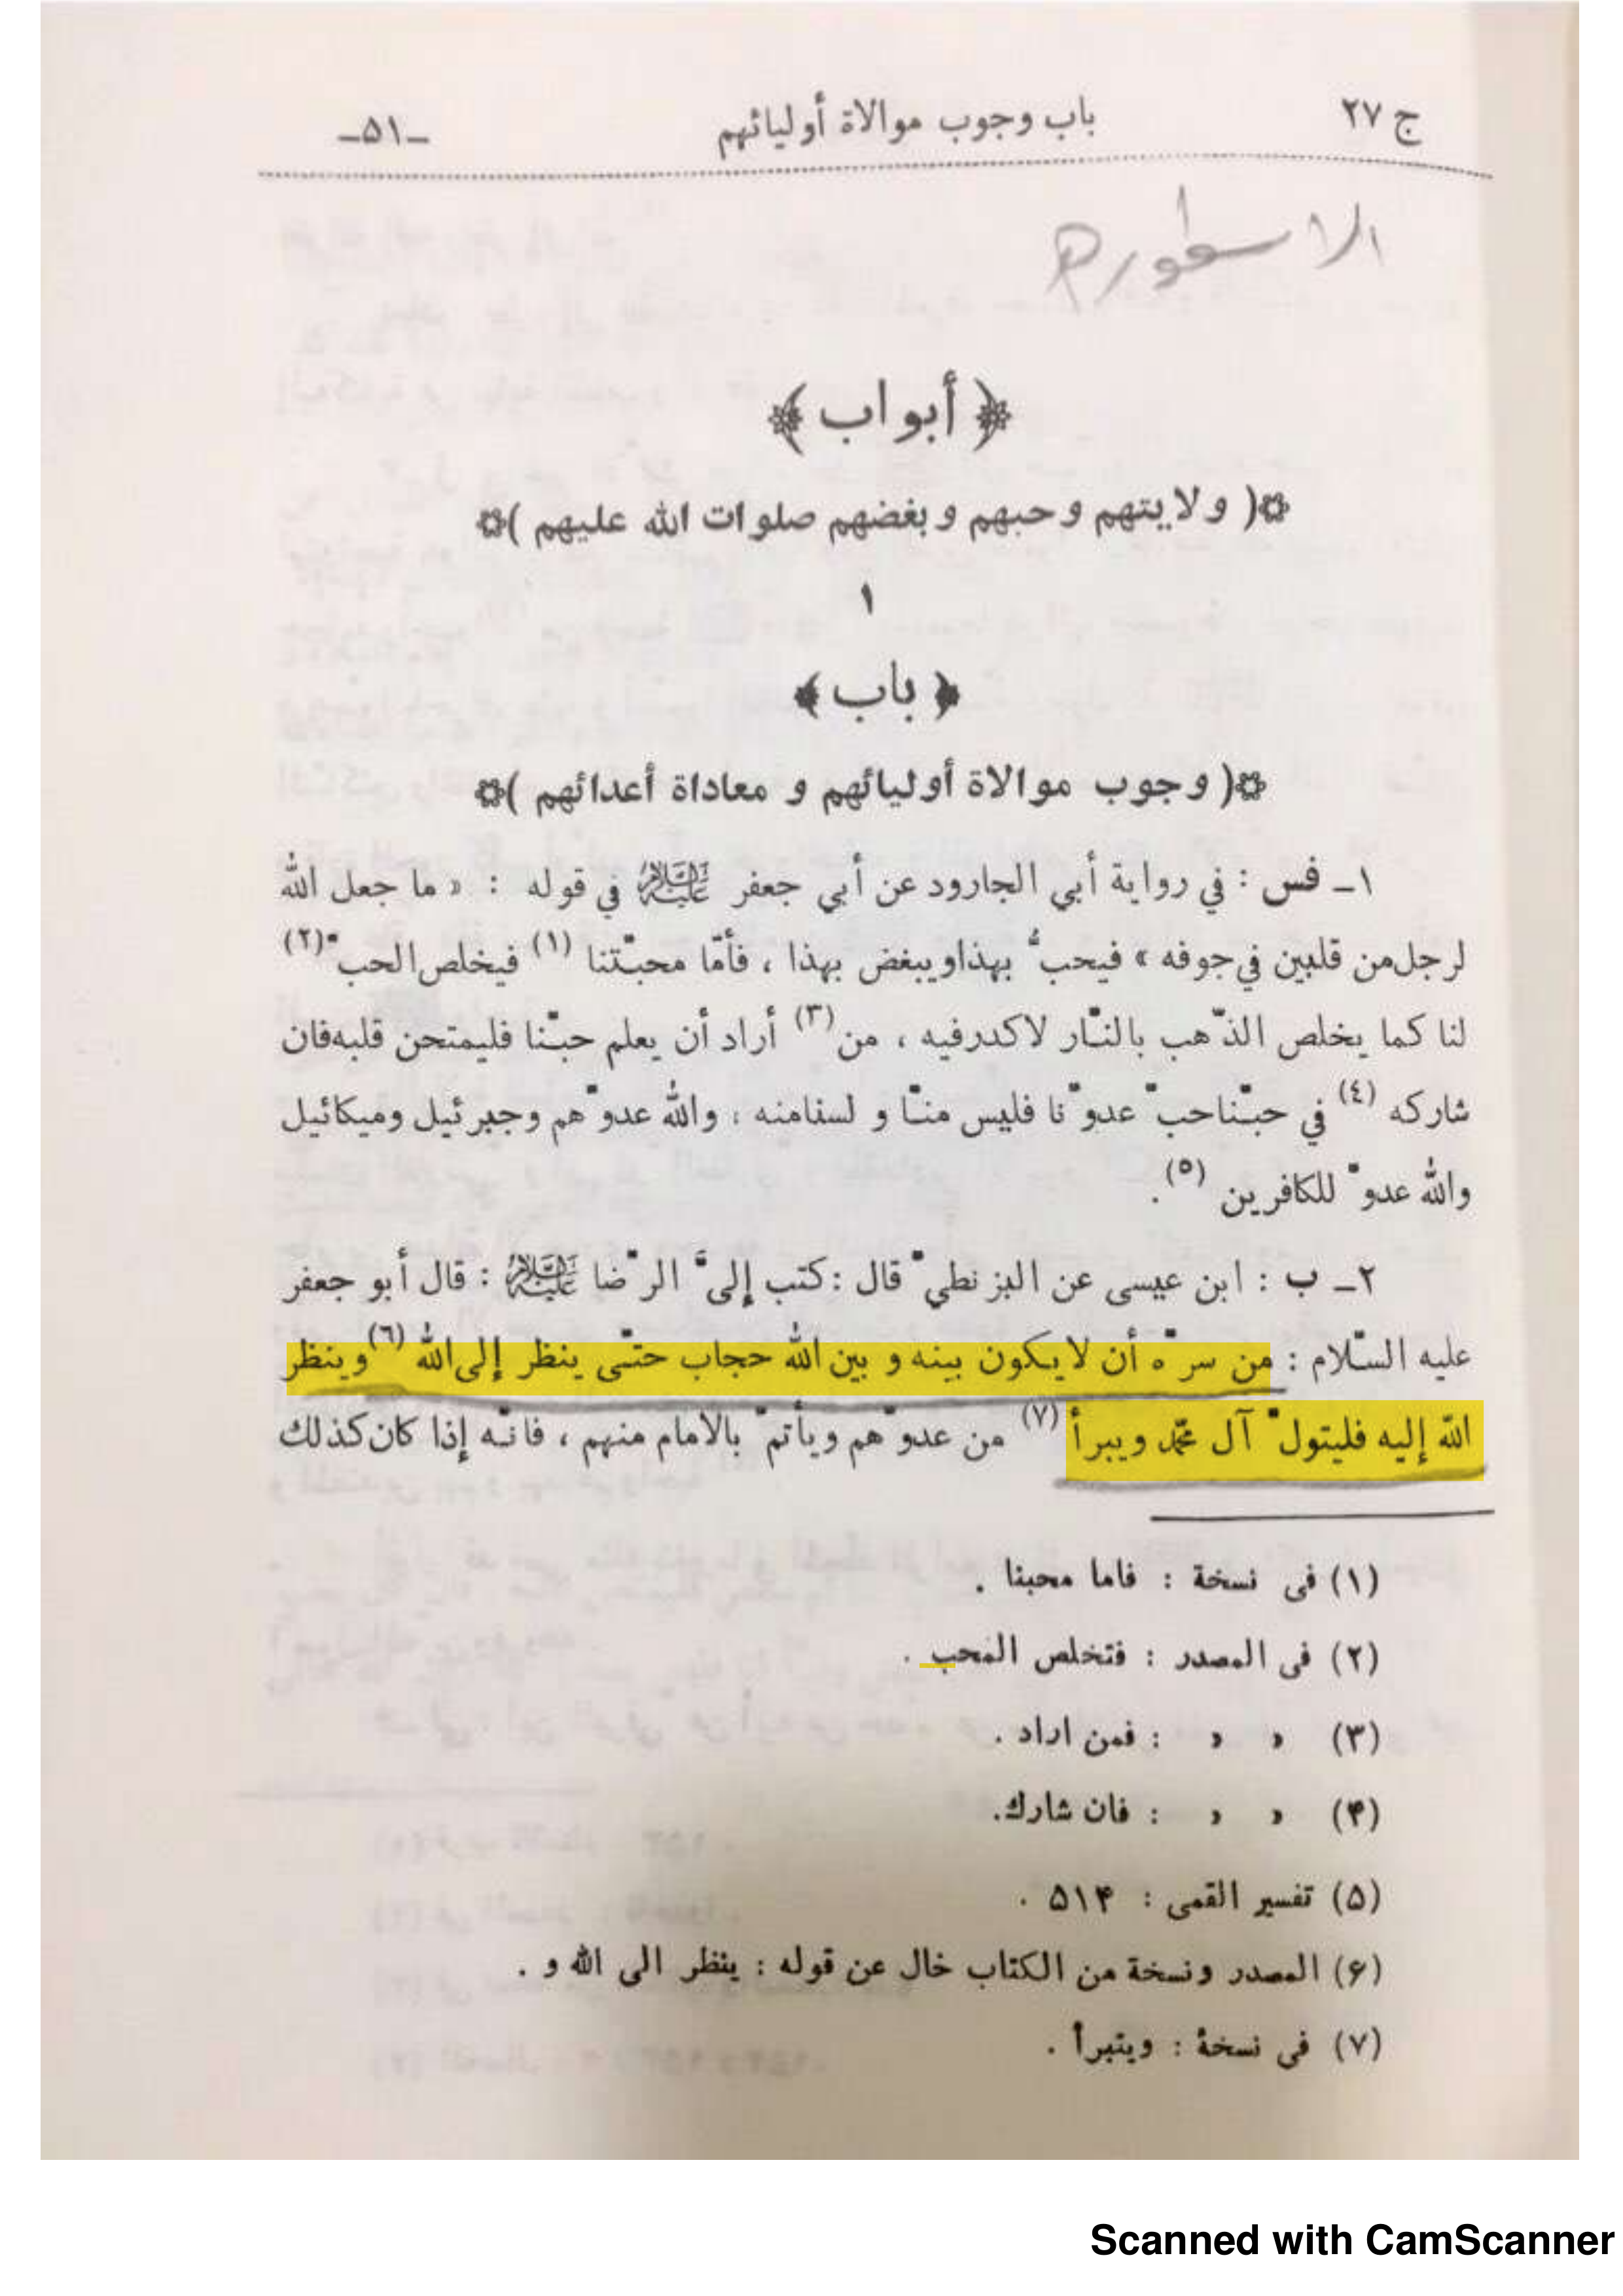 ج ٢٧ باب وجوب موالاة أوليائهم ـ٥١ـ
الاسطوره
﴿ أبواب ﴾
۞( ولايتهم وحبهم وبغضهم صلوات الله عليهم )۞
١
﴿ باب ﴾
۞( وجوب موالاة أوليائهم و معاداة أعدائهم )۞
١ـ فس : في رواية أبي الجارود عن أبي جعفر عليه السلام في قوله : « ما جعل الله
لرجل من قلبين في جوفه » فيحبُّ بهذا ويبغض بهذا ، فأمّا محبّتنا (١) فيخلص الحبّ (٢)
لنا كما يخلص الذّهب بالنّار لاكدر فيه ، من (٣) أراد أن يعلم حبّنا فليمتحن قلبه فان
شاركه (٤) في حبّنا حبّ عدوّنا فليس منّا و لسنا منه ، والله عدوّهم وجبرئيل وميكائيل
والله عدوّ للكافرين (٥).
٢ـ ب : ابن عيسى عن البزنطيّ قال : كتب إليّ الرّضا عليه السلام : قال أبو جعفر
عليه السّلام : من سرّه أن لا يكون بينه و بين الله حجاب حتّى ينظر إلى الله (٦) وينظر
الله إليه فليتولّ آل محمّد ويبرأ (٧) من عدوّهم ويأتمّ بالامام منهم ، فانّه إذا كان كذلك
(١) فى نسخة : فاما محبنا .
(٢) فى المصدر : فتخلص المحب .
(٣) « « : فمن اراد .
(۴) « « : فان شارك.
(۵) تفسير القمى : ۵۱۴ .
(۶) المصدر ونسخة من الكتاب خال عن قوله : ينظر الى الله و .
(٧) فى نسخة : ويتبرأ .
Scanned with CamScanner